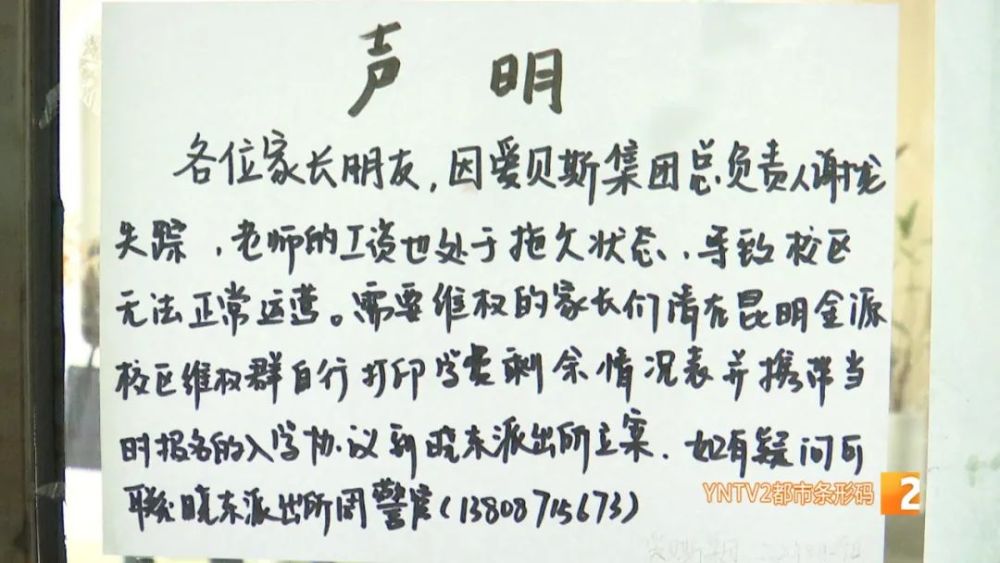 声 明
各位家长朋友，因爱贝斯集团总负责人谢龙
失踪，老师的工资也处于拖欠状态，导致校区
无法正常运营。需要维权的家长们请在昆明金源
校区维权群自行打印学费剩余情况表并携带当
时报名的入学协议到晓东派出所立案．如有疑问可
联系晓东派出所周警官（13808715673）
YNTV2都市条形码 2